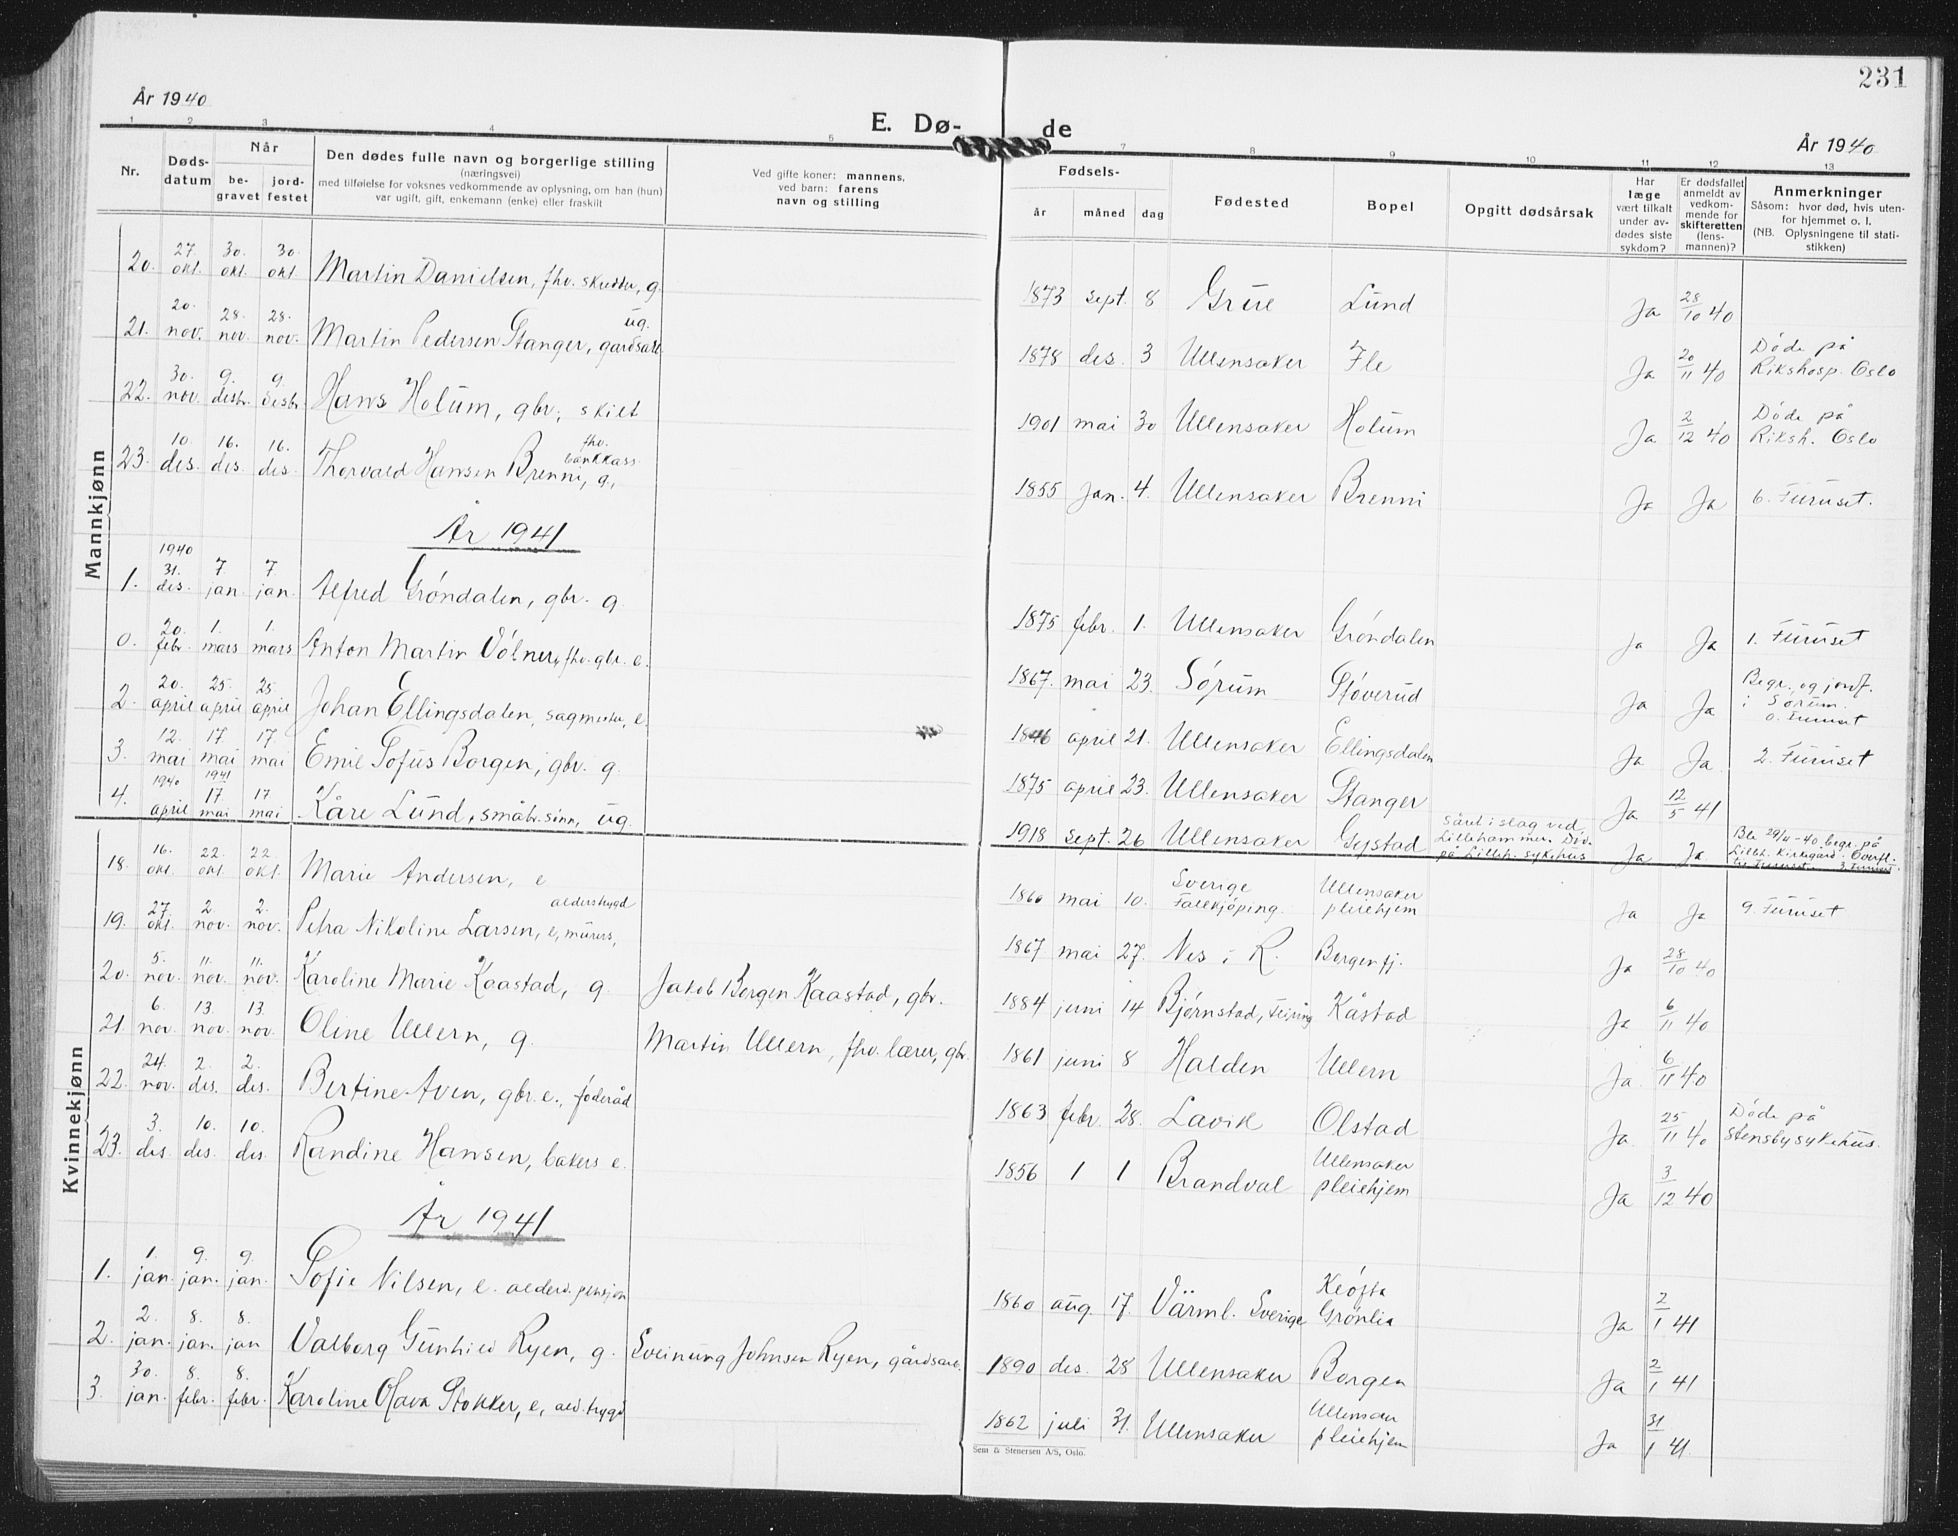 231
År 1940
E. Dø-
de
År 1940
1 2 3 4 5 7 8 9 10 11 12 13
Nr.
Døds-
datum
Når
be-
gravet
jord-
festet
Den dødes fulle navn og borgerlige stilling
(næringsvei)
med tilføielse for voksnes vedkommende av oplysning, om han (hun)
var ugift, gift, enkemann (enke) eller fraskilt
Ved gifte koner: mannens,
ved barn: farens
navn og stilling
Fødsels-
år måned dag
Fødested
Bopel
Opgitt dødsårsak
Har
læge
vært tilkalt
under av-
dødes siste
sykdom?
Er dødsfallet
anmeldt av
vedkom-
mende for
skifteretten
(lens-
mannen)?
Anmerkninger
Såsom: hvor død, hvis uten-
for hjemmet o. l.
(NB. Oplysningene til stati-
stikken)
Mannkjønn
20. 27. okt. 30. okt. 30. okt. Martin Danielsen, fhv. g. 1873 sept. 8 Grue Lund Ja 28/10 40
21. 20. nov. 28. nov. 28. nov. Martin Pedersen Stanger, gårdsarb. ug. 1878 des. 3 Ullensaker Fle Ja 20/11 40 Døde på
Rikshosp. Oslo
22. 30. nov. 9. desbr. 9. desbr. Hans Holum, gbr., skilt 1901 mai 30 Ullensaker Holum Ja 2/12 40 Døde på
Riksh. Oslo
23. 10. des. 16. des. 16. des. Thorvald Hansen Brenni, fhv. bankkass. g. 1855 jan. 4. Ullensaker Brenni Ja Ja 6. Furuset.
År 1941
1. 1940 31. des. 7 jan. 7 jan. Alfred Grøndalen, gbr. g. 1875 febr. 1. Ullensaker Grøndalen Ja Ja 1. Furuset
0. 20. febr. 1. mars 1. mars Anton Martin Vølner, fhv. gbr. e. 1867. mai 23. Sørum Støverud Ja Ja Begr. og jordf.
i Sørum.
0. Furuset
2. 20. april 25. april 25. april Johan Ellingsdalen, sagmester, e. 1846 april 21. Ullensaker Ellingsdalen Ja Ja. 2. Furuset
3. 12. mai 17. mai 17. mai Emil Sofus Borgen, gbr. g. 1875 april 23. Ullensaker Stanger Ja 12/5 41
4. 1940 april 1941 17 mai 17 mai Kåre Lund, småbr. sønn, ug. 1918 sept. 26 Ullensaker Gystad Såret i slag ved
Lillehammer. Død
på Lilleh. sykehus Ja Ja Ble 29/4-40 begr. på
Lilleh. kirkegård. Overfl.
til Furuset. 3. Furuset
Kvinnekjønn
18. 16. okt. 22. okt. 22. okt. Marie Andersen, e 1860 mai 10. Sverige
Falekjøping. Ullensaker
pleiehjem Ja Ja 9. Furuset
19. 27. okt. 2. nov. 2. nov. Petra Nikoline Larsen, e, murers, alderstrygd 1867 mai 27. Nes i R. Borgen fj. Ja 28/10 40
20. 5. nov. 11. nov. 11. nov. Karoline Marie Kaastad, g. Jakob Borgen Kaastad, gbr. 1884 juni 14 Bjørnstad, Feiring Kåstad Ja 6/11 40
21. 6. nov. 13. nov. 13. nov. Oline Ullern, g. Martin Ullern, fhv. lærer, gbr. 1861 juni 8 Halden Ullern Ja. 6/11 40
22. 24. nov. 2. des. 2. des. Bertine Aven, gbr. e., føderåd 1863 febr. 28. Lavik Olstad Ja 25/11 40 Døde på
Stensby sykehus.
23. 3. des. 10. des. 10. des. Randine Hansen, bakers e. 1856 1 1 Brandval Ullensaker
pleiehjem Ja 3/12 40
År 1941
1. 1. jan. 9. jan. 9. jan. Sofie Nilsen, e. alders. pensjon 1860 aug. 17 Värml. Sverige Kløfta
Grønlia Ja 2/1 41
2. 2. jan. 8. jan. 8. jan Valborg Gunhild Ryen, g. Sveinung Johnsen Ryen, gårdsarb. 1890 des. 28 Ullensaker Borgen Ja 2/1 41
3. 30. jan. 8. febr. 8. febr. Karoline Olava Stokker, e, ald. trygd 1862 juli 31. Ullensaker Ullensaker
pleiehjem Ja 31/1 41.
Sem & Stenersen A/S, Oslo.